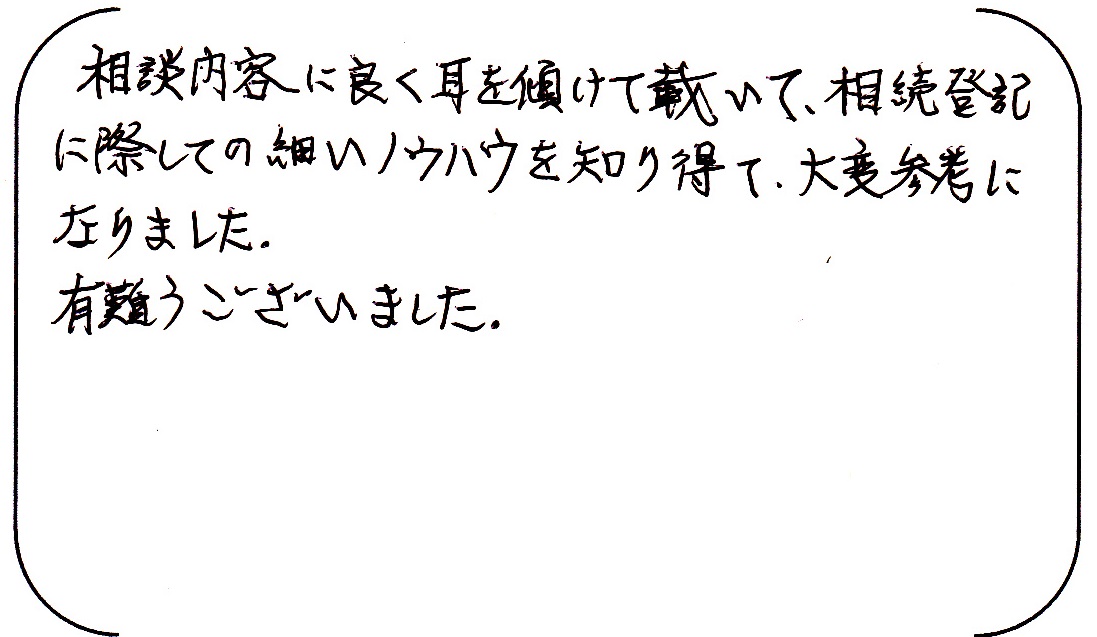 相談内容に良く耳を傾けて載いて、相続登記
に際しての細いノウハウを知り得て、大変参考に
なりました。
有難うございました。